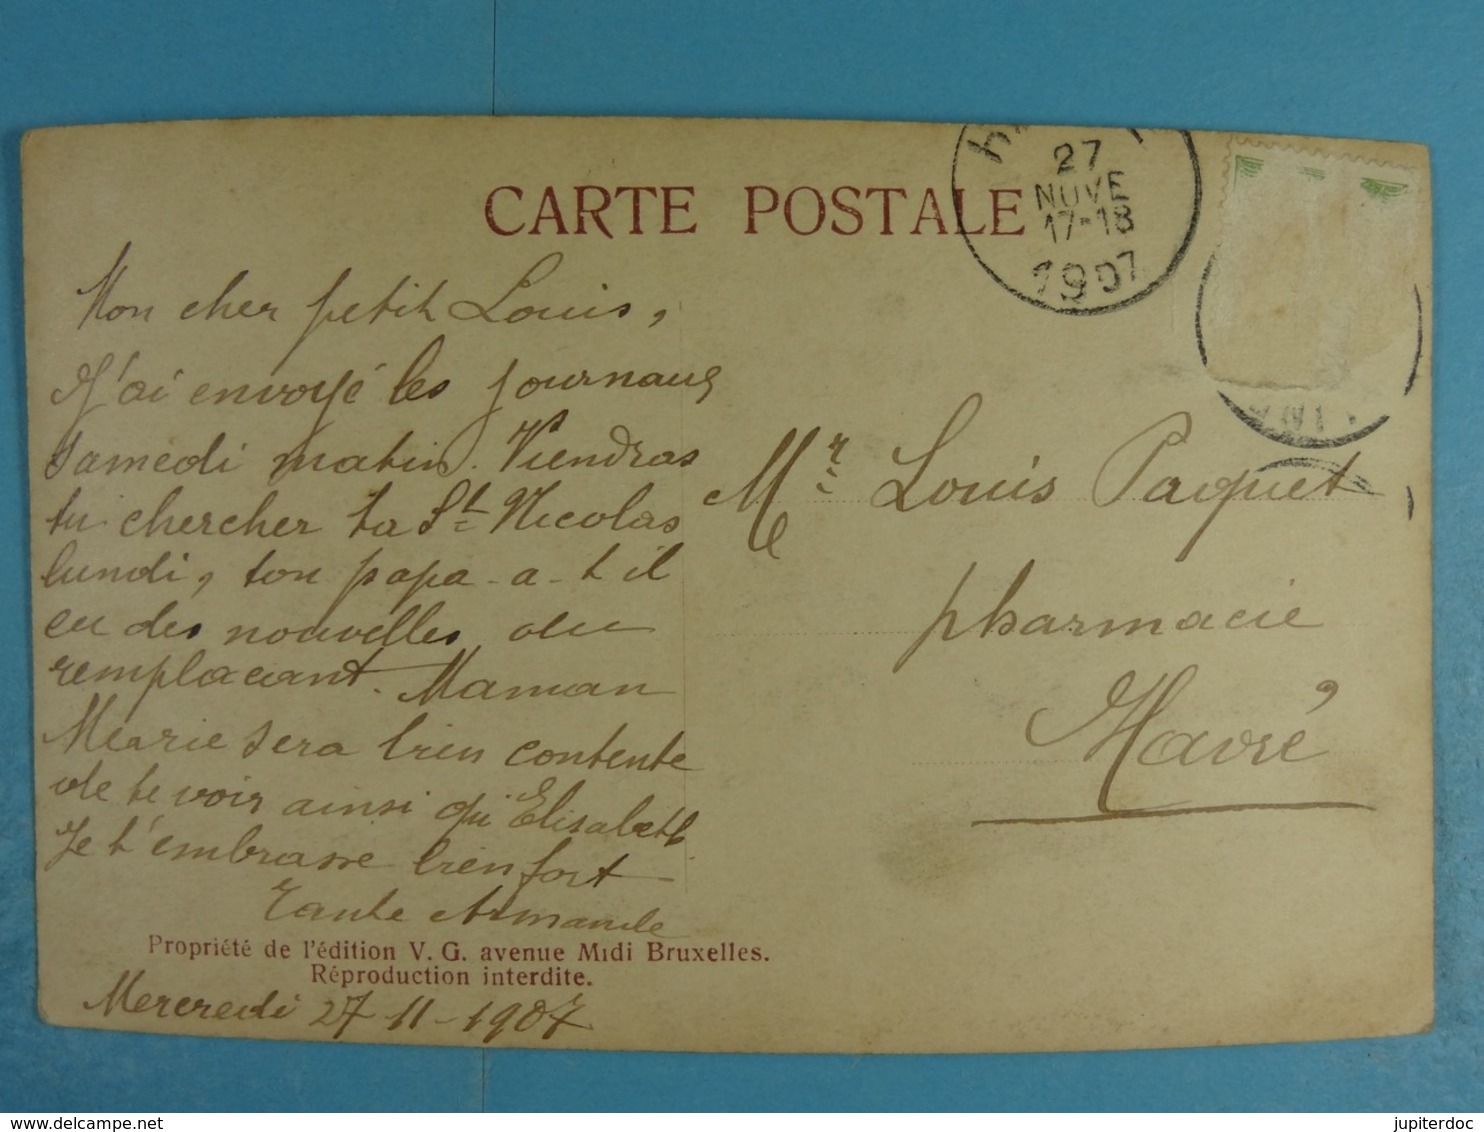 CARTE POSTALE
27
NOVE
17-18
1907
Mon cher petit Louis,
J'ai envoyé les journaux
samedi matin. Viendras
tu chercher ta St Nicolas
lundi, ton papa-a-t il
eu des nouvelles du
remplacant. Maman
Marie sera bien contente
de te voir ainsi qu'Elisabeth
Je t'embrasse bien fort
Tante Armande
Propriété de l'édition V. G. avenue Midi Bruxelles.
Réproduction interdite.
Mercredi 27-11-1907
Mr Louis Paquet
pharmacie
Havré
www.delcampe.net
jupiterdoc